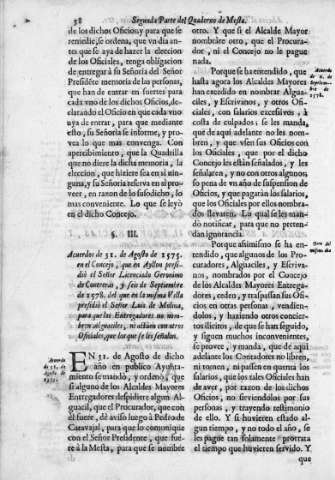 38 Segunda Parte del Quaderno de Mesta.
de los dichos Oficios; y para que se
remedie, se ordena, que vn dia an-
tes que se aya de hazer la eleccion
de los Oficiales, tenga obligacion
de entregar à su Señoria del Señor
Presidẽte memoria de las personas,
que han de entrar en suertes para
cada vno de los dichos Oficios, de-
clarando el Oficio en que cada vno
aya de entrar, para que mediante
esto, su Señoria se informe, y pro-
vea lo que mas convenga. Con
apercibimiento, que la Quadrilla
que no diere la dicha memoria, la
eleccion, que hiziere sea en si nin-
guna, y su Señoria reserva en sì pro-
veer, en razon de lo susodicho, lo
mas conveniente. Lo que se leyò
en el dicho Concejo.
§. III.
Acuerdos de 31. de Agosto de 1575.
en el Concejo, que en Ayllon presi-
diò el Señor Licenciado Geronimo
de Contreras, y seis de Septiembre
de 1578. del que en la misma Villa
presidiò el Señor Luis de Molina,
para que los Entregadores no nom-
bren Alguaciles, ni
Oficiales, que los que se les señalan.
EN 31. de Agosto de dicho
año en publico Ayunta-
miento se mandò, y ordenò, que
si alguno de los Alcaldes Mayores
Entregadores despidiere algun Al-
guacil, que el Procurador, que con
èl fuere, dè aviso luego à Pedro de
Caravajal, para que lo comunique
con el Señor Presidente, que fue-
re à la Mesta, para que se nombre
otro. Y que si el Alcalde Mayor
nombrâre otro, que el Procura-
dor, ni el Concejo no le pague
nada.
Porque se ha entendido, que
hasta agora los Alcaldes Mayores
han excedido en nombrar Algua-
ciles, y Escrivanos, y otros Ofi-
ciales, con salarios excessivos, à
costa de culpados; se les manda,
que de aqui adelante no les nom-
bren, y que vsen sus Oficios con
los Oficiales, que por el dicho
Concejo les estàn señalados, y les
señalaren, y no con otros algunos;
so pena de vn año de suspension de
Oficios, y que pagaràn los salarios,
que los Oficiales por ellos nombra-
dos llevaren. Lo qual se les man-
da notificar, para que no preten-
dan ignorancia.
Porque asimismo se ha en-
tendido, que algunos de los Pro-
curadores, Alguaciles, y Escriva-
nos, nombrados por el Concejo
de los Alcaldes Mayores Entrega-
dores, ceden, y traspassan sus Ofi-
cios en otras personas, vendien-
dolos, y haziendo otros concier-
tos ilicitos, de que se han seguido,
y siguen muchos inconvenientes,
se provee, y manda, que de aqui
adelante los Contadores no libren,
ni tomen, ni passen en quenta los
salarios, que los tales Oficiales han
de aver, por razon de los dichos
Oficios, no serviendolos por sus
personas, y trayendo testimonio
de ello. Y si huvieren estado al-
gun tiempo, y no todo el año, se
les pague tan solamente prorrata
el tiempo que huvieren servido. Y
que